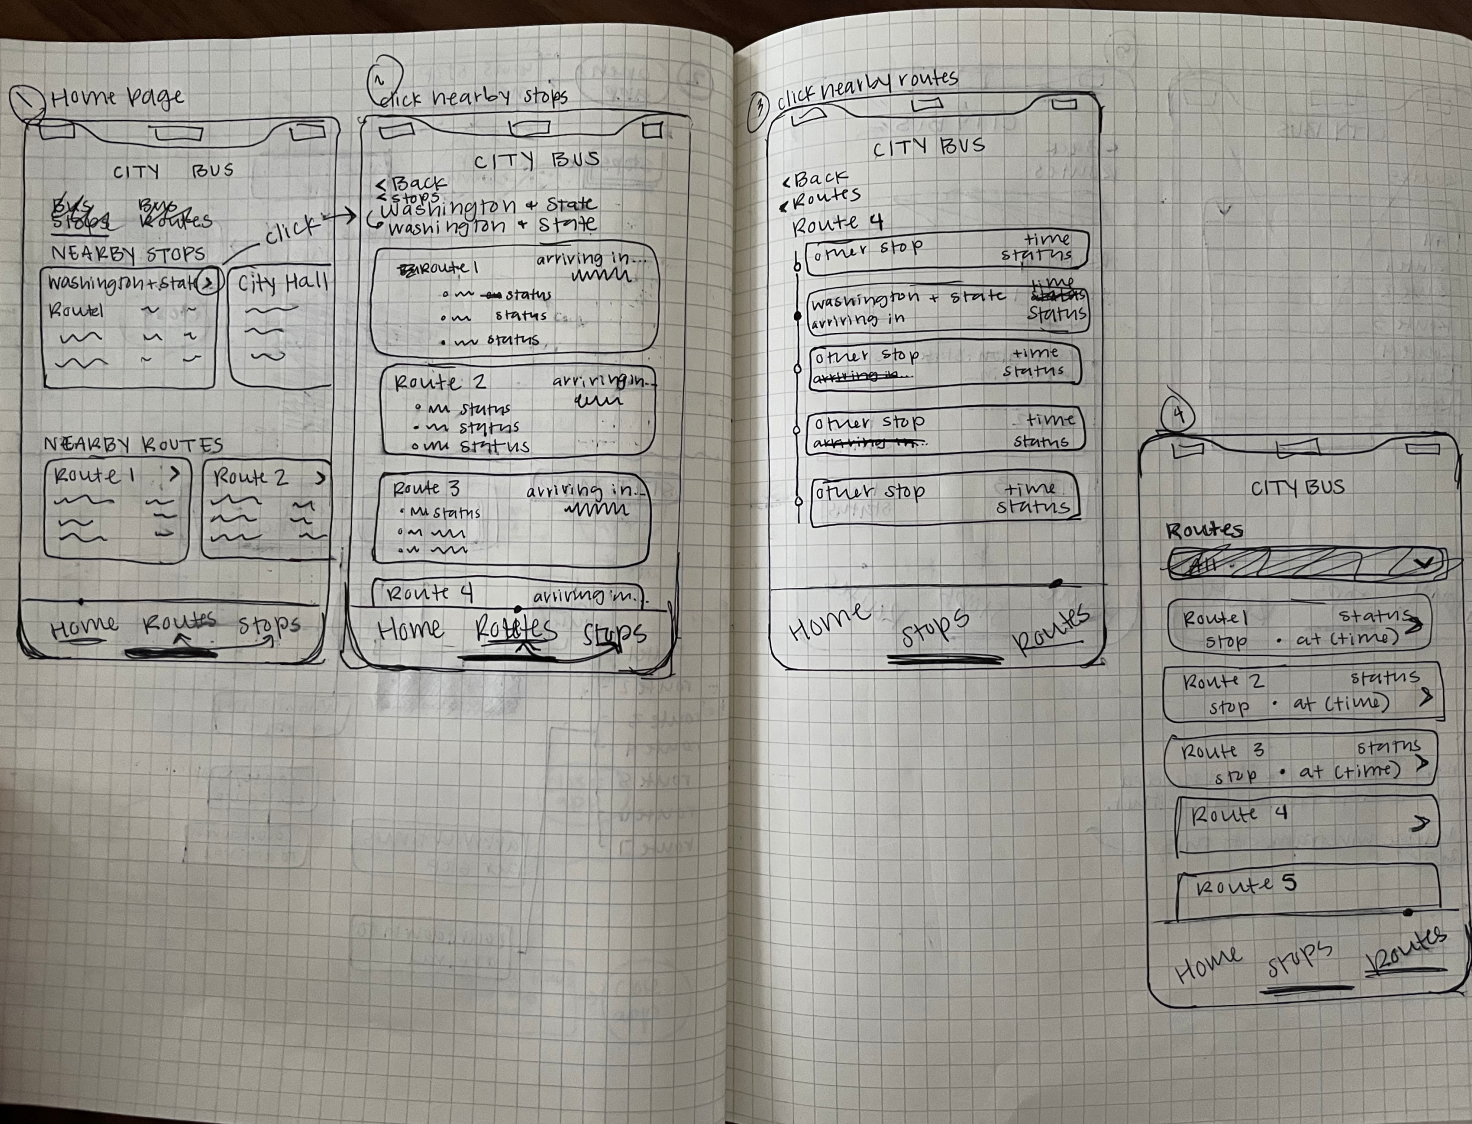 1 Home page
CITY BUS
Bus Stops
Bus Routes
NEARBY STOPS
Washington + State >
Route 1
City Hall
NEARBY ROUTES
Route 1 >
Route 2 >
Home Routes Stops
click
2
click nearby stops
CITY BUS
< Back
< stops
Washington + State
Washington + State
Route 1 arriving in...
status
status
status
Route 2 arriving in...
status
status
status
Route 3 arriving in...
status
Route 4 arriving in..
Home Routes Stops
3 click nearby routes
CITY BUS
< Back
< Routes
Route 4
other stop time
status
time
washington + state status
arriving in status
other stop time
arriving in... status
other stop time
arriving in... status
other stop time
status
Home Stops Routes
4
CITY BUS
Routes
All
Route 1 status
stop · at (time) >
Route 2 status
stop · at (time) >
Route 3 status
stop · at (time) >
Route 4 >
Route 5
Home Stops Routes